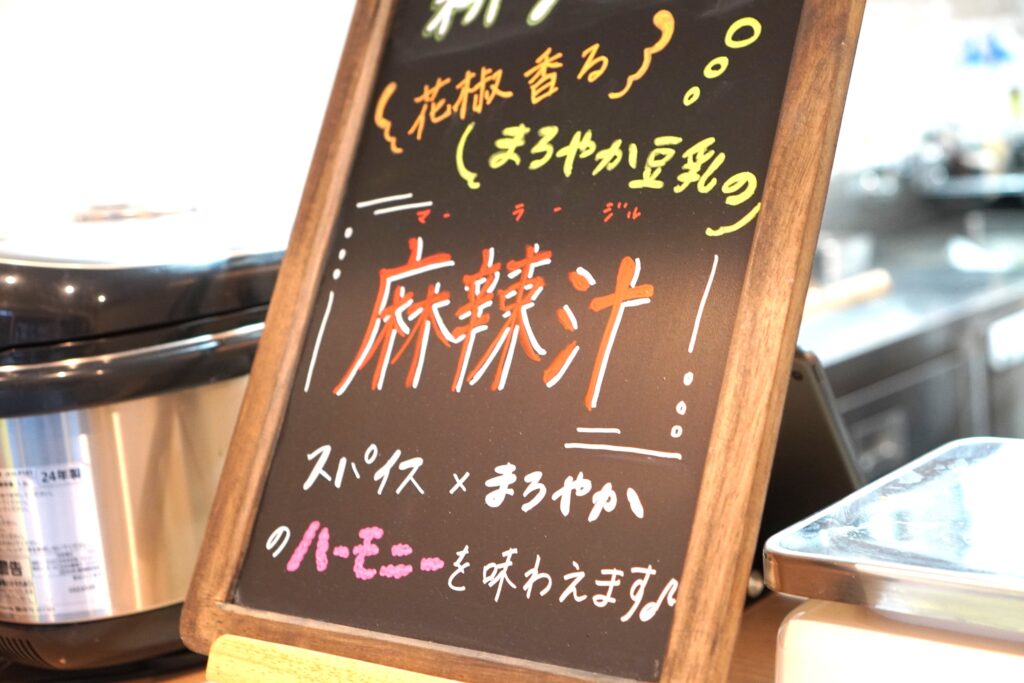 花椒香る
まろやか豆乳の
マーラージル
麻辣汁
スパイス×まろやか
のハーモニーを味わえます♪
24年製